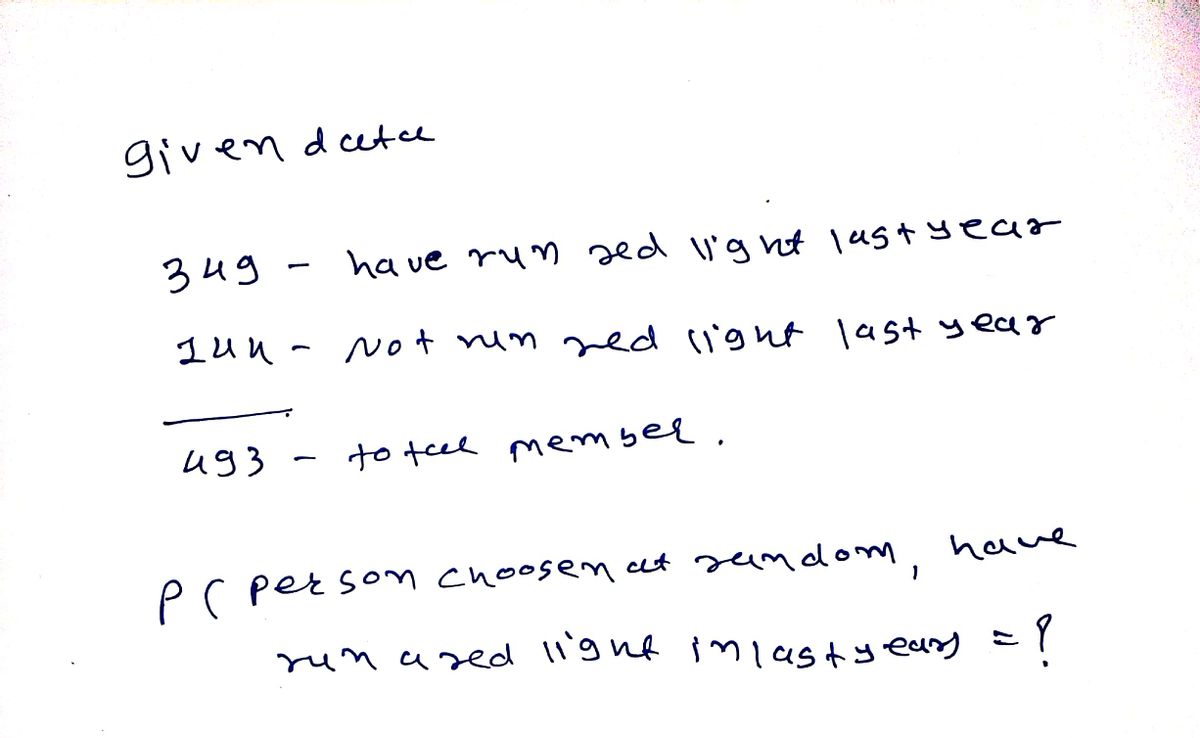 given data
349 - have run red light last year
144 - Not run red light last year
493 - total member.
P( person choosen at random, have
run a red light in last years = ?